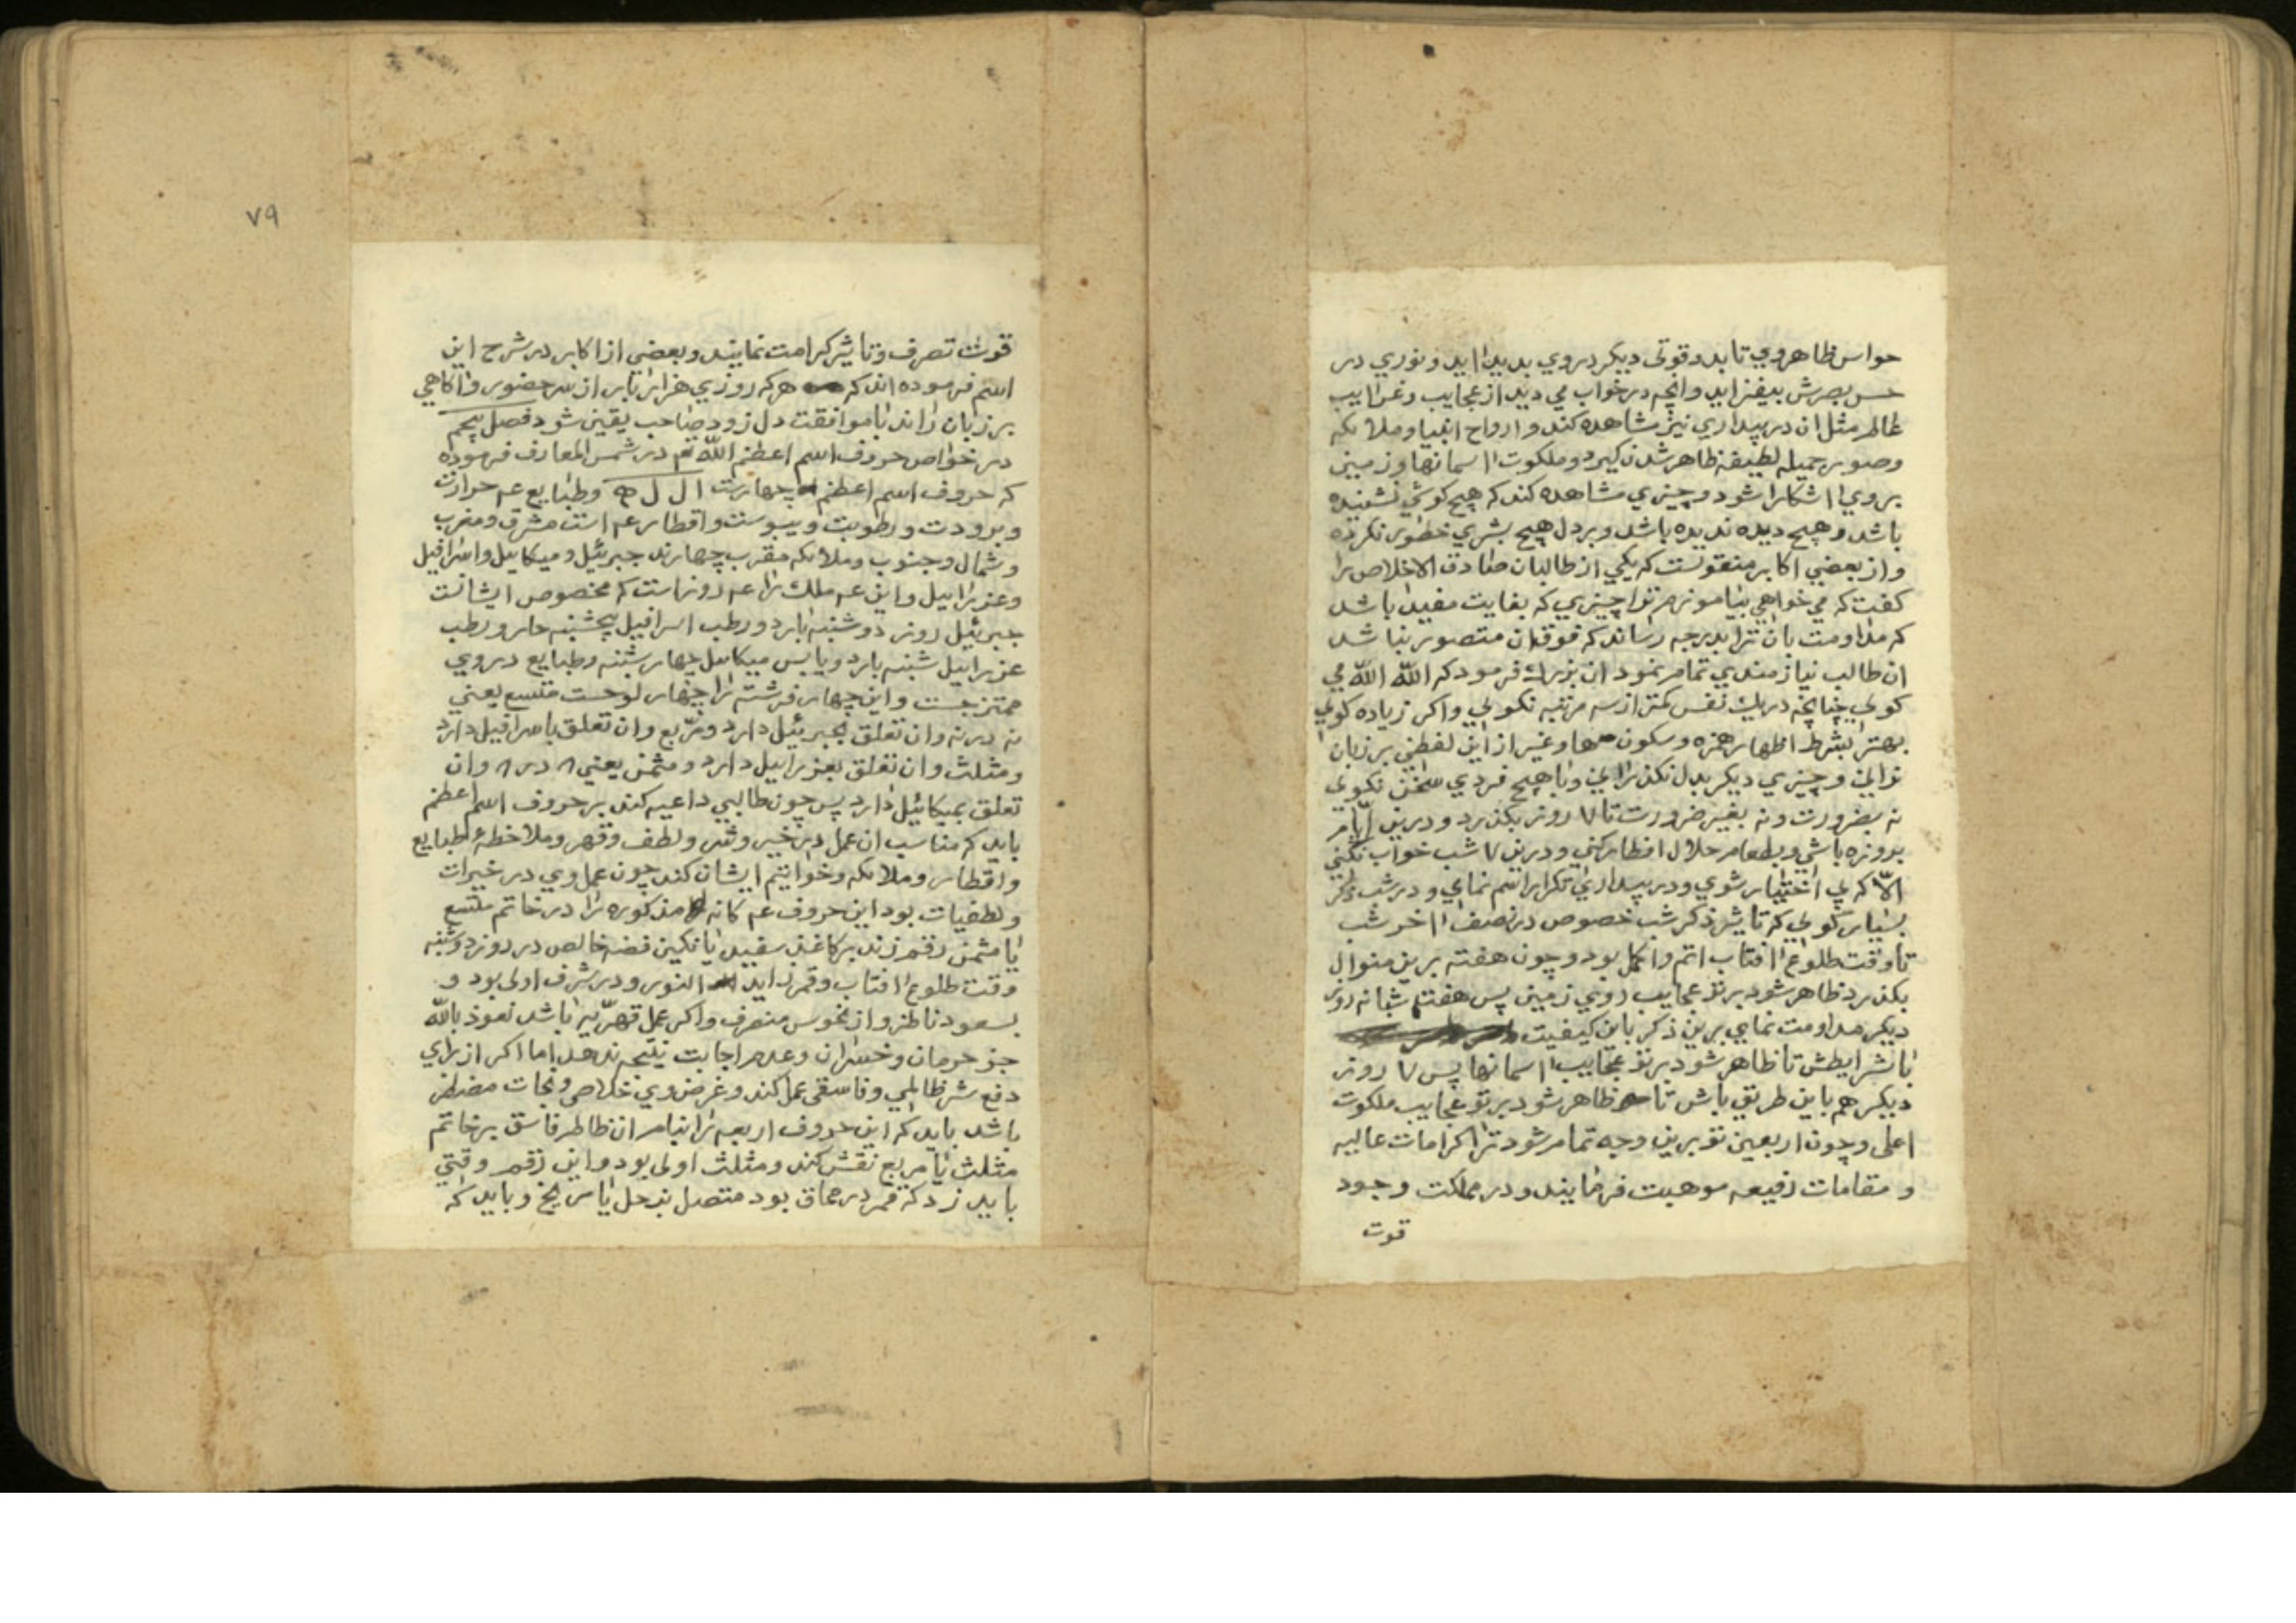 حواس ظاهر وي تابد و قوتي ديكر در وي بديد ايد و نوري در
حس بصرش بيفزايد وانچه در خواب مي ديد از عجايب و غرايب
عالم مثل ان در بيداري نيز مشاهده كند و ارواح انبيا و ملائكه
وصور جميله لطيفه ظاهر شدن كيرد و ملكوت اسمانها و زمين
بر وي اشكارا شود و چيزي مشاهده كند كه هيچ كوش نشنيده
باشد و هيچ ديده نديده باشد و بر دل هيچ بشري خطور نكرده
و از بعضي اكابر منقولست كه يكي از طالبان صادق الاخلاص را
كفت كه مي خواهي بياموزم ترا چيزي كه بغايت مفيد باشد
كه مداومت بان ترا بدرجه رساند كه فوق ان متصور نباشد
ان طالب نيازمندي تمام نمود ان بزرك فرمود كه الله الله مي
كوئي چنانچه در يك نفس كمتر از سه مرتبه نكوئي واكر زياده كوئي
بهتر بشرط اظهار همزه و سكون ها و غير از اين لفظي بر زبان
نراني و چيزي ديكر بدل نكذراني و با هيچ فردي سخن نكوئي
نه بضرورت و نه بغير ضرورت تا ٧ روز بكذرد و درين ايام
بروزه باشي و بطعام حلال افطار كني و درين ٧ شب خواب نكني
الا كه بي اختيار شوي و در بيداري تكرار اسم نماي و در شب ذكر
بسيار كوئي كه تاثير ذكر شب خصوص در نصف اخر شب
تا وقت طلوع افتاب اتم و اكمل بود و چون هفته برين منوال
بكذرد ظاهر شود بر تو عجايب روي زمين پس هفتم شبانه روز
ديكر مداومت نماي برين ذكر باين كيفيت
با شرايطش تا ظاهر شود بر تو عجايب اسمانها پس ٧ روز
ديكر هم باين طريق باش تا ظاهر شود بر تو عجايب ملكوت
اعلى و چون اربعين تو برين وجه تمام شود ترا كرامات عاليه
و مقامات رفيعه موهبت فرمايند و در مملكت وجود
قوت
٧٩
قوت تصرف و تاثير كرامت نمايند و بعضي از اكابر در شرح اين
اسم فرموده اند كه هر كه روزي هزار بار از سر حضور و اكاهي
بر زبان راند با موافقت دل زود صاحب يقين شود فصل پنجم
در خواص حروف اسم اعظم الله تع در شمس المعارف فرموده
كه حروف اسم اعظم چهارست ا ل ل ه و طبايع عم حرارت
و برودت و رطوبت و يبوست و اقطار عم است مشرق و مغرب
و شمال و جنوب و ملائكه مقرب چهارند جبرئيل و ميكاييل و اسرافيل
و عزراييل و اين عم ملك را عم روز است كه مخصوص ايشانست
جبرئيل روز دوشنبه بارد و رطب اسرافيل پنجشنبه حار و رطب
عزراييل شنبه بارد و يابس ميكاييل چهارشنبه و طبايع در وي
ممتزجست و اين چهار فرشته را چهار لوحست متسع يعني
نه در نه و ان تعلق بجبرئيل دارد و مربع و ان تعلق باسرافيل دارد
و مثلث و ان تعلق بعزراييل دارد و مثمن يعني ٨ در ٨ و ان
تعلق بميكائيل دارد پس چون طالبي داعيه كند بر حروف اسم اعظم
بايد كه مناسب ان عمل در خير و شر و لطف و قهر و ملاحظه طبايع
و اقطار و ملائكه و خواتيم ايشان كند چون عمل وي در خيرات
و لطفيات بود اين حروف عم كانه مذكوره را در خاتم متسع
يا مثمن رقم زند بر كاغذ سفيد يا نكين فضه خالص در روز دوشنبه
وقت طلوع افتاب و قمر زايد النور و در شرف اولى بود و
بسعود ناظر و از نحوس منصرف و اكر عمل قهريه باشد نعوذ بالله
جز حرمان و خسران و عدم اجابت نتيجه ندهد اما اكر از براي
دفع شر ظالمي و فاسقي عمل كند و غرض وي خلاص و نجات مضطر
باشد بايد كه اين حروف اربعه را بنام ان ظالم فاسق بر خاتم
مثلث يا مربع نقش كند و مثلث اولى بود و اين رقم وقتي
بايد زد كه قمر در محاق بود متصل بزحل يا مريخ و بايد كه